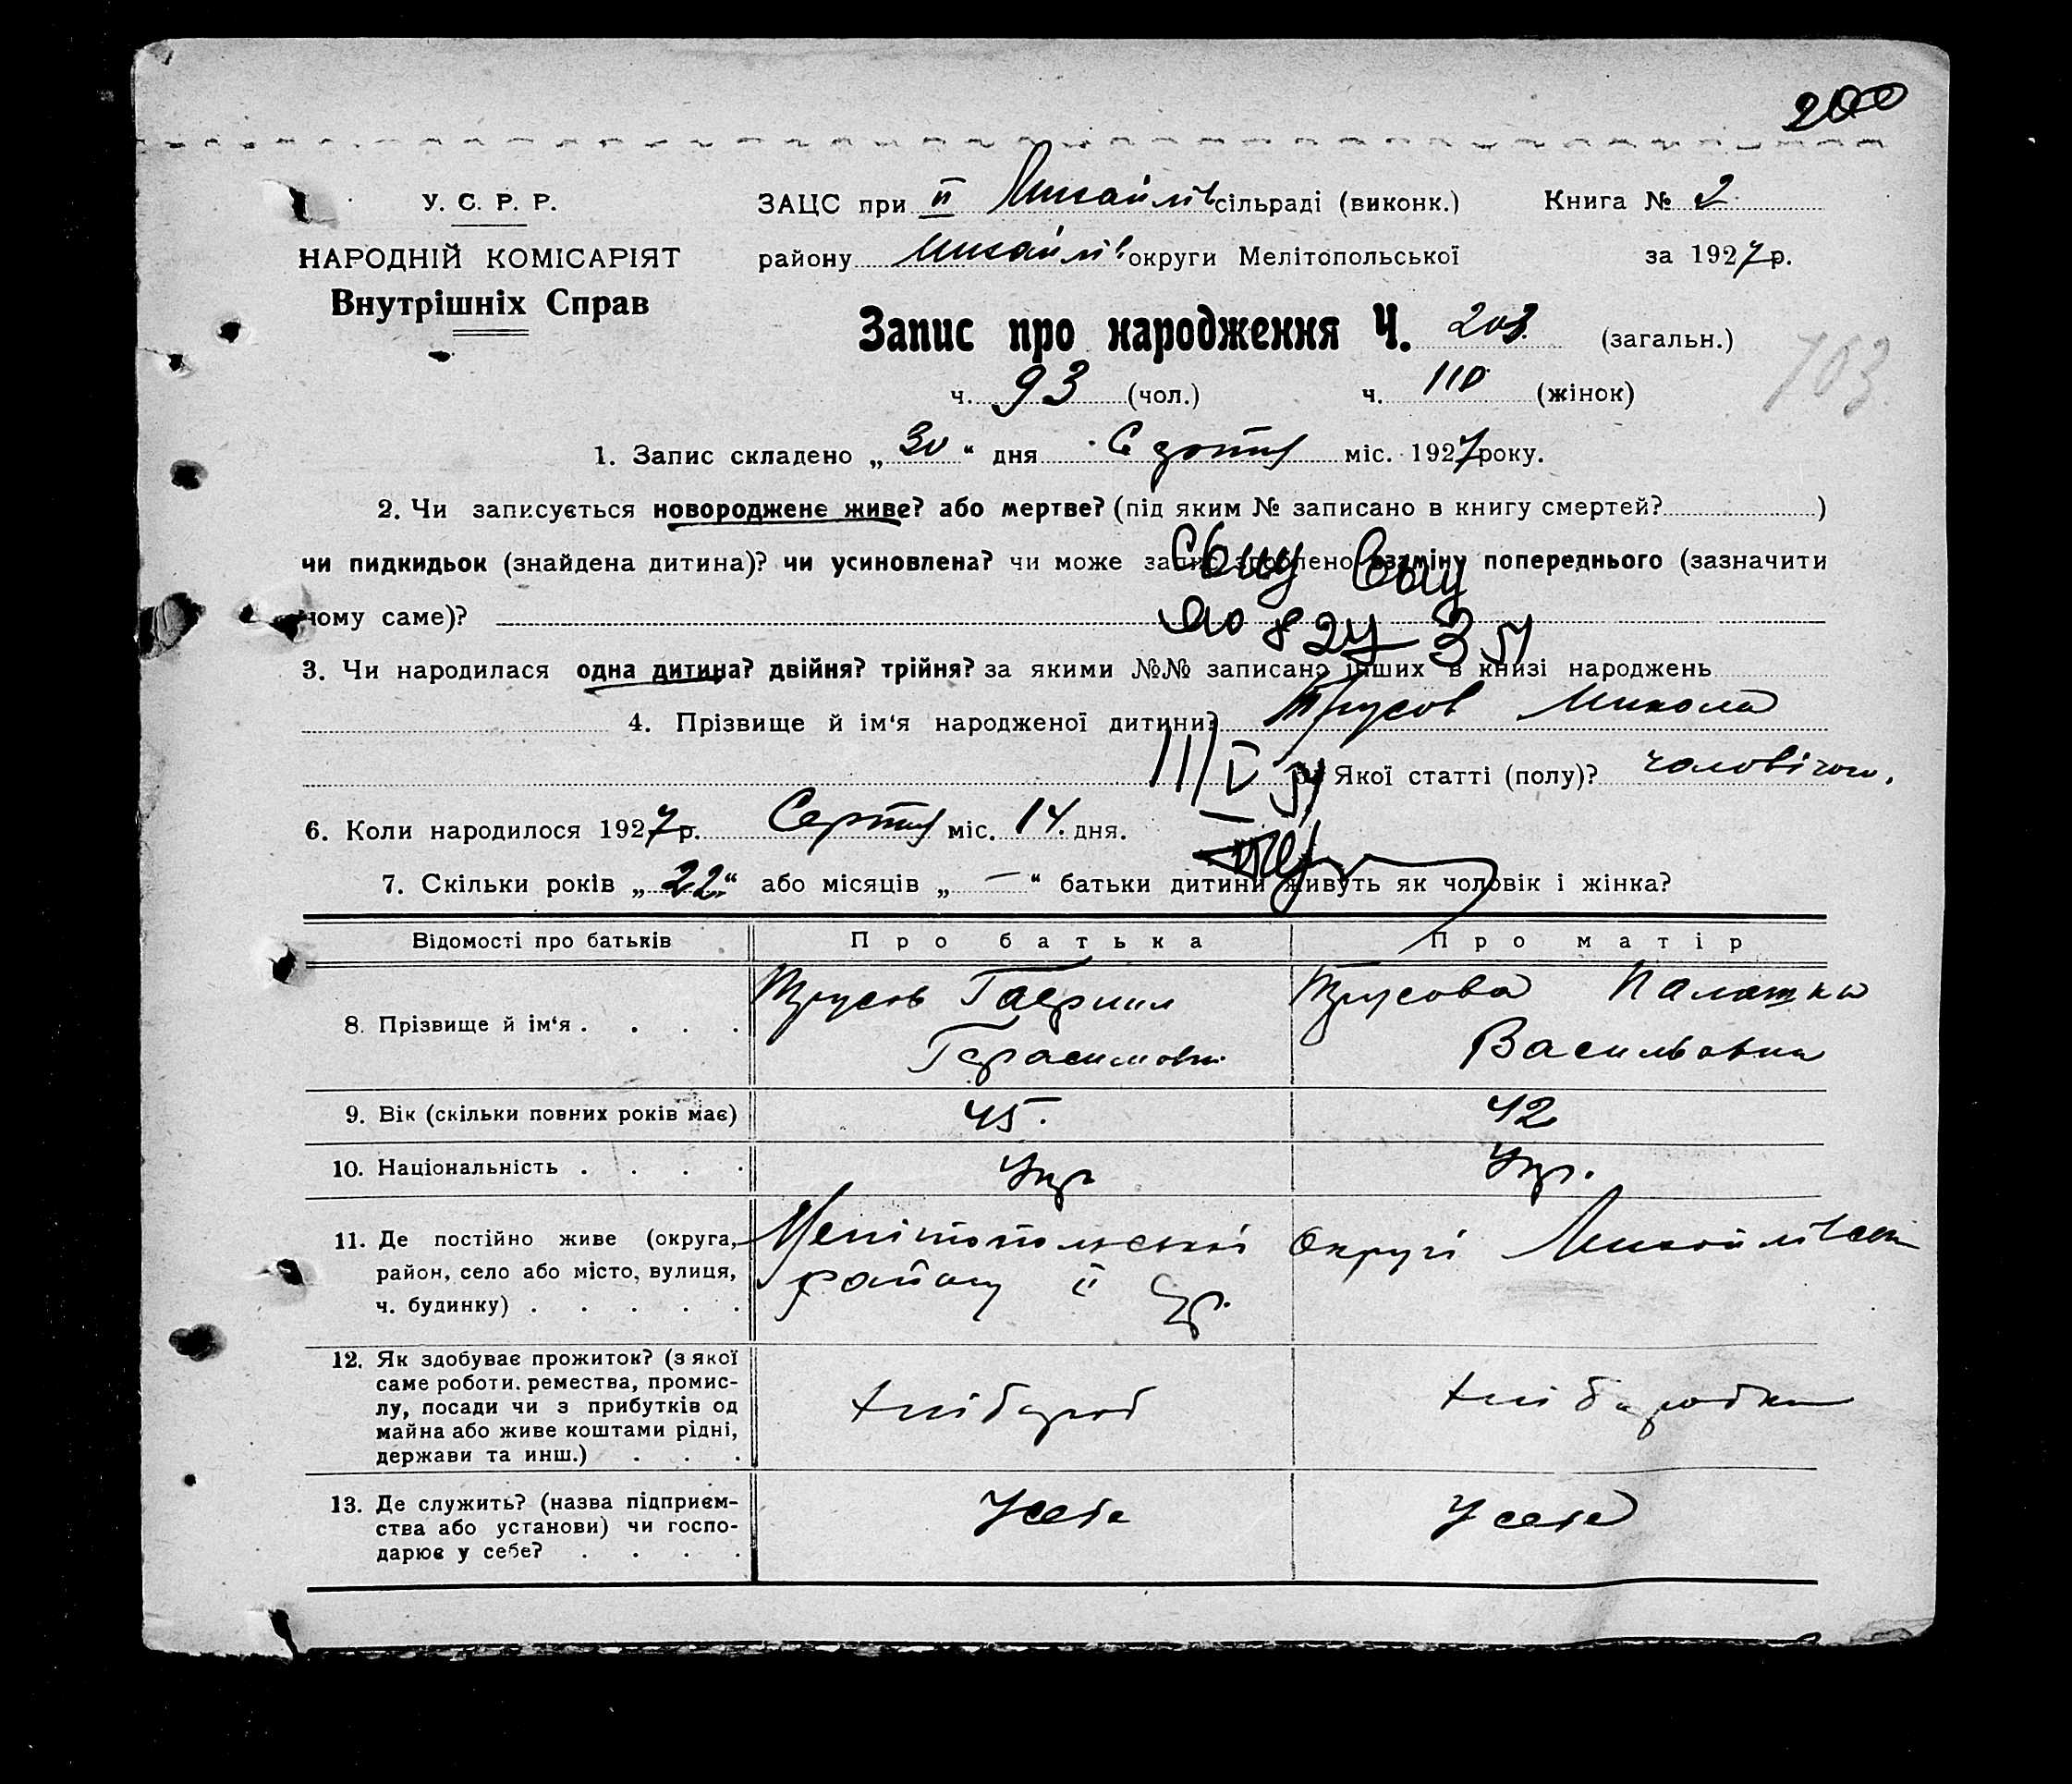 200
У. С. Р. Р.
ЗАЦС при II Михайлів сільраді (виконк.)
Книга № 2
НАРОДНІЙ КОМІСАРІЯТ
району Михайлів округи Мелітопольської
за 1927 р.
Внутрішніх Справ
Запис про народження Ч. 203 (загальн.)
ч. 93 (чол.) ч. 110 (жінок)
703
1. Запис складено „30“ дня Серпня міс. 1927 року.
2. Чи записується новороджене живе? або мертве? (під яким № записано в книгу смертей? )
чи пидкидьок (знайдена дитина)? чи усиновлена? чи може запис зроблено взаміну попереднього (зазначити
чому саме)?
3. Чи народилася одна дитина? двійня? трійня? за якими №№ записано інших в книзі народжень
4. Прізвище й ім‘я народженої дитини? Трусов Микола
5. Якої статті (полу)? чоловічого.
6. Коли народилося 1927 р. Серпня міс. 14 дня.
7. Скільки років „22“ або місяців „—“ батьки дитини живуть як чоловік і жінка?
Відомості про батьків
Про батька
Про матір
8. Прізвище й ім‘я . . . .
Трусов Гавриил
Герасимович
Трусова Палашка
Васильовна
9. Вік (скільки повних років має)
45.
42
10. Національність . . . .
Укр
Укр.
11. Де постійно живе (округа,
район, село або місто, вулиця,
ч. будинку) . . . . .
Мелітопольської Округі Михайлівськ
району II
12. Як здобуває прожиток? (з якої
саме роботи, ремества, промис-
лу, посади чи з прибутків од
майна або живе коштами рідні,
держави та инш.) . . .
хлібороб
хліборобка
13. Де служить? (назва підприєм-
ства або установи) чи госпо-
дарює у себе? . . . .
У себе
У себе